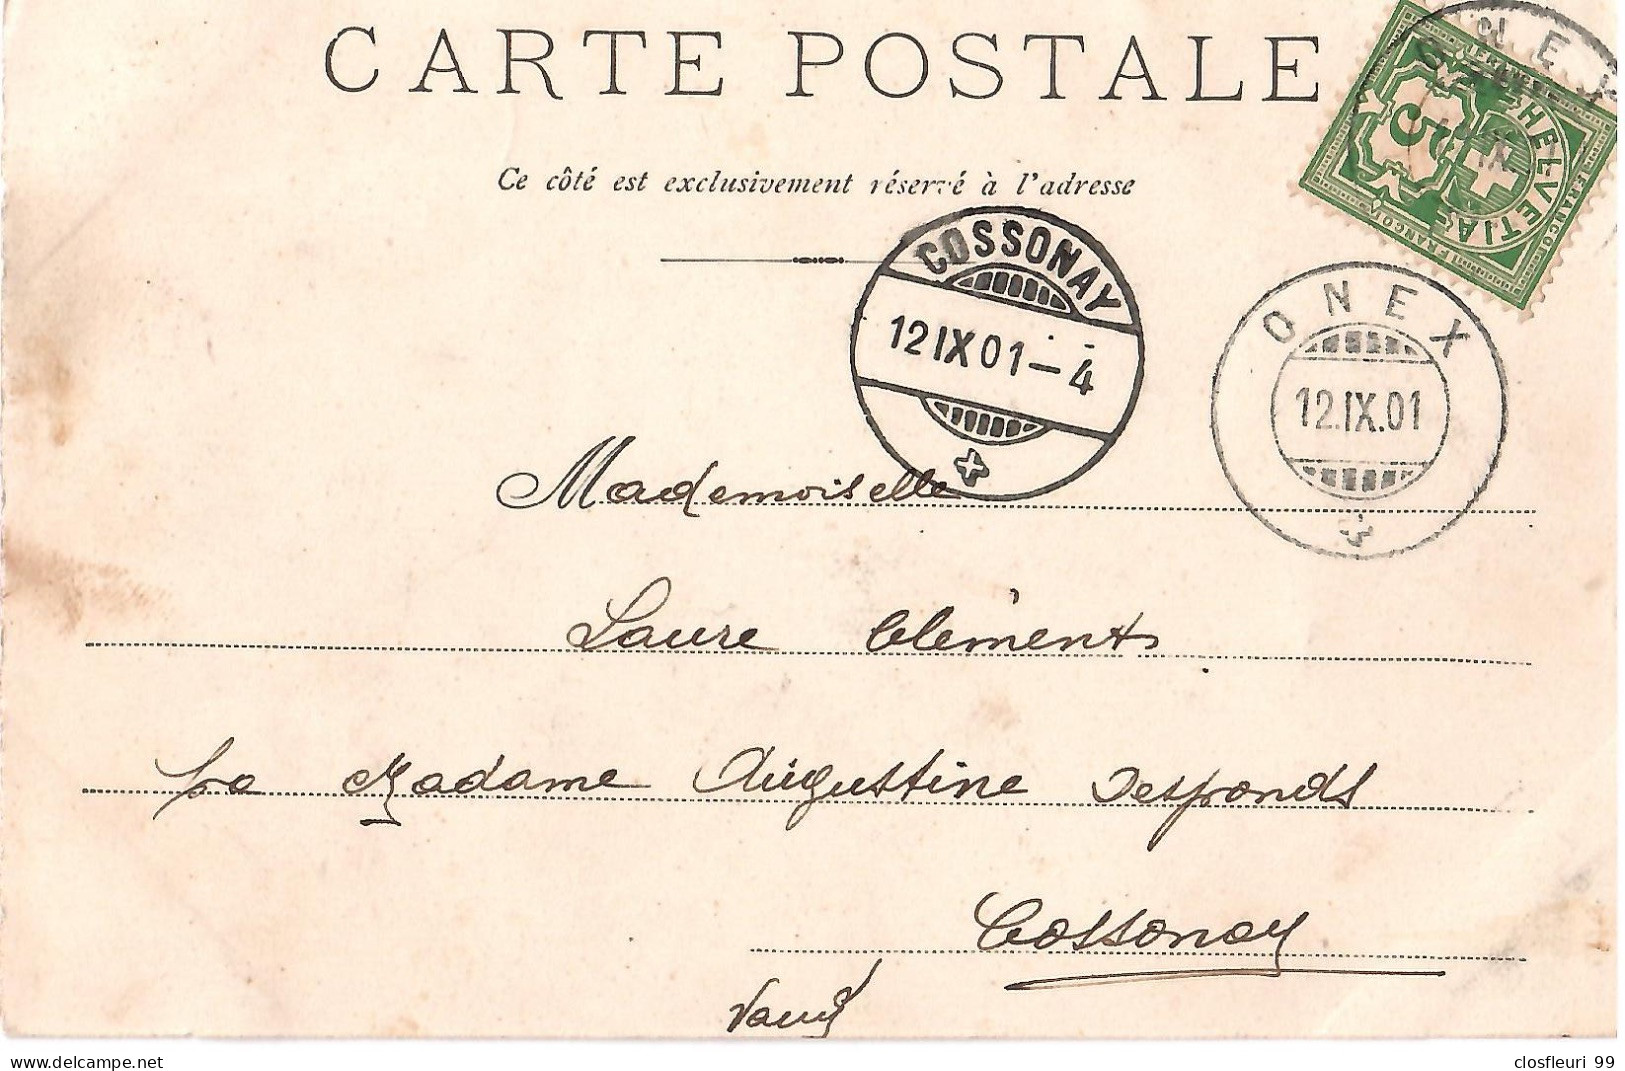 CARTE POSTALE
Ce côté est exclusivement réservé à l'adresse
HELVETIA
FRANCO
5
ONEX
COSSONAY
12 IX 01 – 4
ONEX
12.IX.01
Mademoiselle
Laure Cléments
Madame Augustine Desponds
Cossonay
Vaud
delcampe.net
closfleuri 99